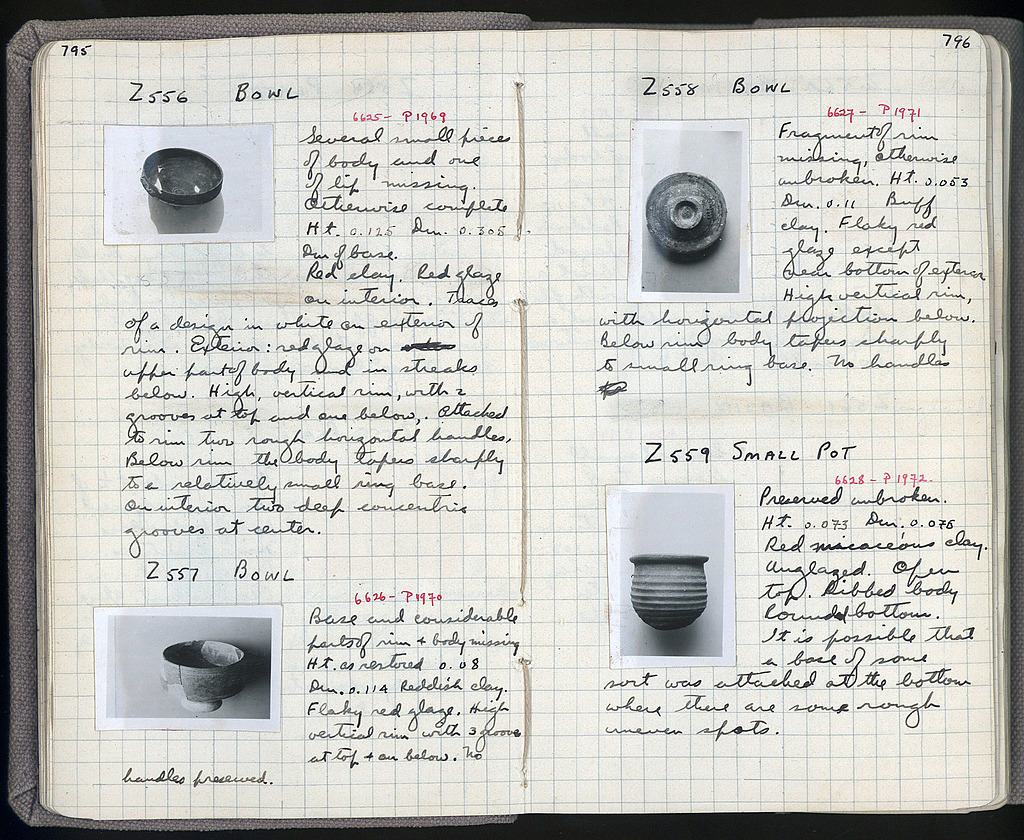 795
Z556 BOWL
6625 - P1969
Several small pieces
of body and one
of lip missing.
Otherwise complete
Ht. 0.125 Dm. 0.305
Dm of base.
Red clay. Red glaze
on interior. Traces
of a design in white on exterior of
rim. Exterior: red glaze on
upper part of body and in streaks
below. High, vertical rim, with 2
grooves at top and one below. Attached
to rim two rough horizontal handles.
Below rim the body tapers sharply
to a relatively small ring base.
On interior two deep concentric
grooves at center.
Z557 BOWL
6626 - P1970
Base and considerable
parts of rim + body missing
Ht. as restored 0.08
Dm. 0.114 Reddish clay.
Flaky red glaze. High
vertical rim with 3 grooves
at top + on below. No
handles preserved.
796
Z558 BOWL
6627 - P1971
Fragment of rim
missing, otherwise
unbroken. Ht. 0.053
Dm. 0.11 Buff
clay. Flaky red
glaze except
near bottom of exterior
High vertical rim,
with horizontal projection below.
Below rim body tapers sharply
to small ring base. No handles
Z559 SMALL POT
6628 - P1972.
Preserved unbroken.
Ht. 0.073 Dm. 0.076
Red micaceous clay.
Unglazed. Open
top. Ribbed body
Rounded bottom.
It is possible that
a base of some
sort was attached at the bottom
where there are some rough
uneven spots.